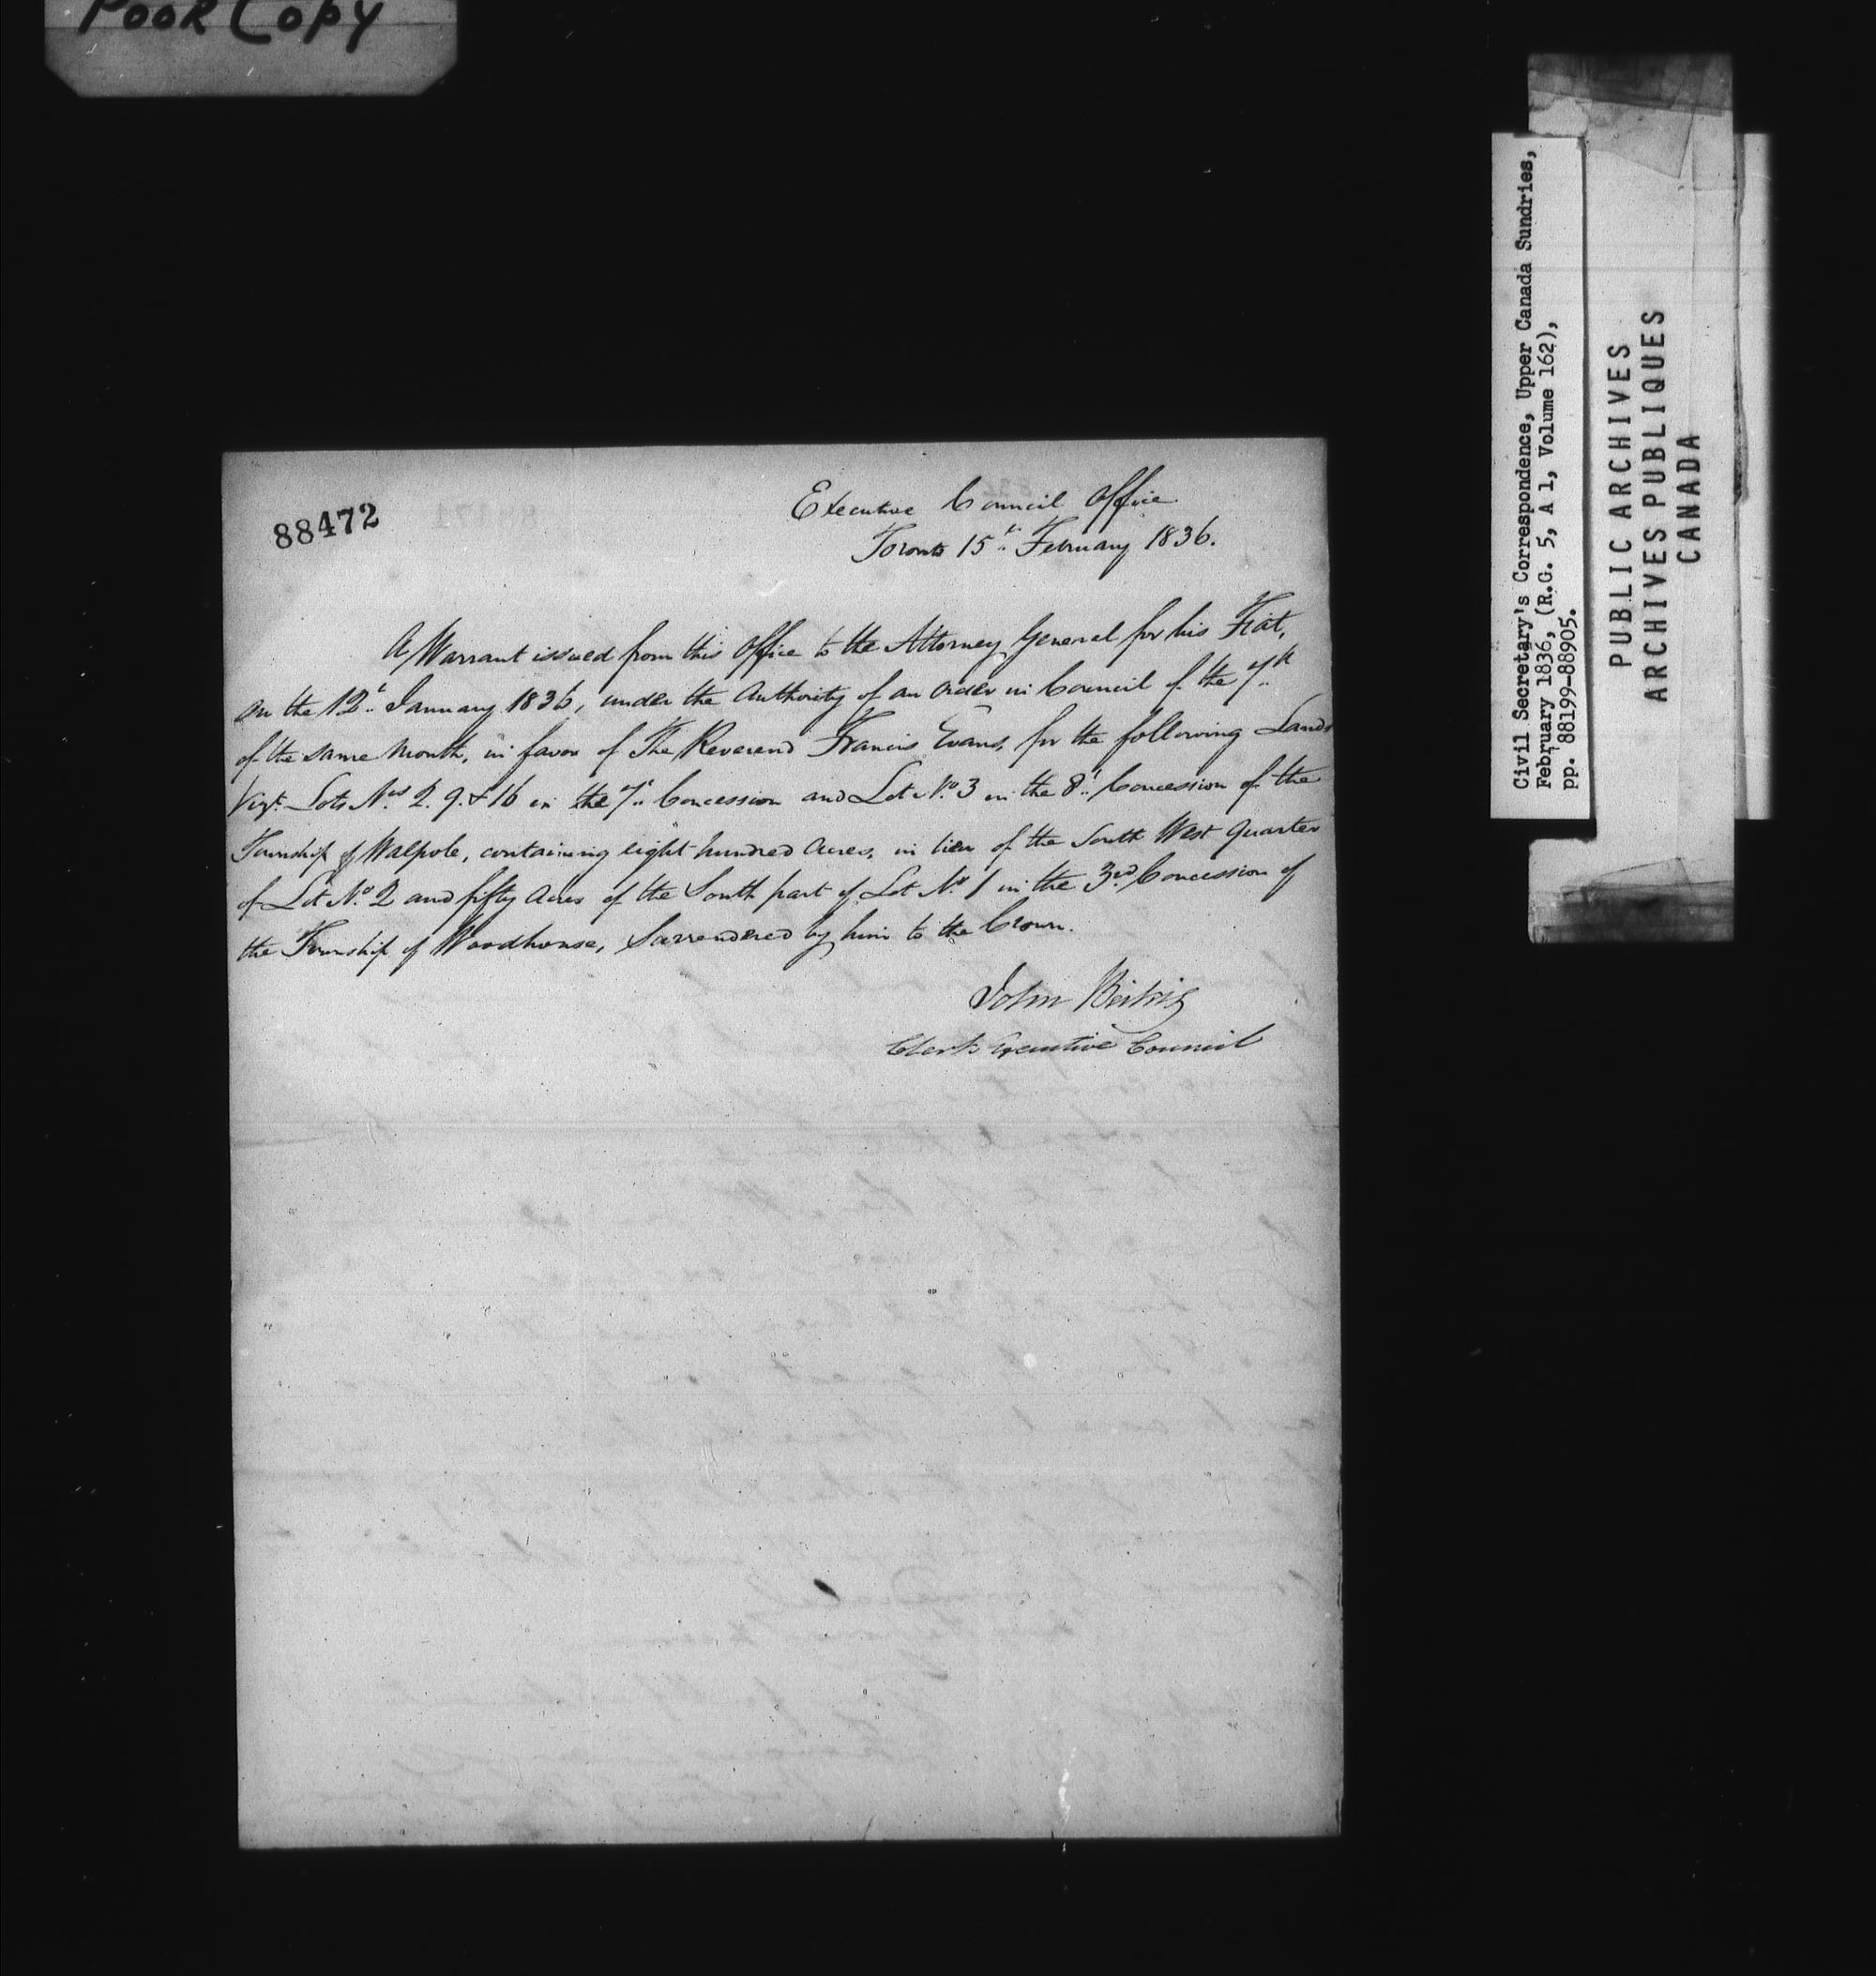 Poor Copy
88472
Executive Council Office
Toronto 15th February 1836.
A Warrant issued from this Office to the Attorney General for his Fiat,
on the 12th January 1836, under the Authority of an Order in Council of the 7th
of the same Month, in favor of The Reverend Francis Evans, for the following Lands
Vizt. Lots Nos 2. 9. & 16 in the 7th Concession and Lot No. 3 in the 8th Concession of the
Township of Walpole, containing eight hundred Acres, in lieu of the South West Quarter
of Lot No. 2 and fifty Acres of the South part of Lot No 1 in the 3rd Concession of
the Township of Woodhouse, Surrendered by him to the Crown.
John Beikie
Clerk Executive Council
Civil Secretary's Correspondence, Upper Canada Sundries,
February 1836, (R.G. 5, A 1, Volume 162),
pp. 88199-88905.
PUBLIC ARCHIVES
ARCHIVES PUBLIQUES
CANADA